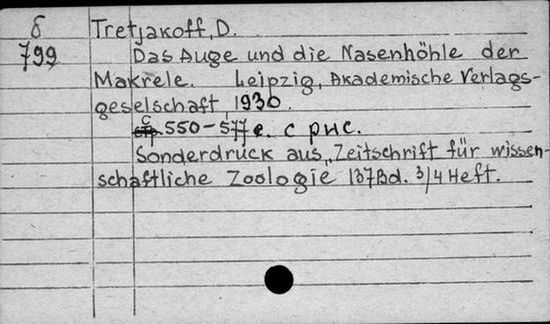 б Tretjakoff, D.
799 Das Auge und die Nasenhöhle der
Makrele. Leipzig, Akademische Verlags-
gesellschaft 1930.
С 550-577 с. с рис.
Sonderdruck aus „Zeitschrift für wissen-
schaftliche Zoologie 137Bd. 3/4 Heft.